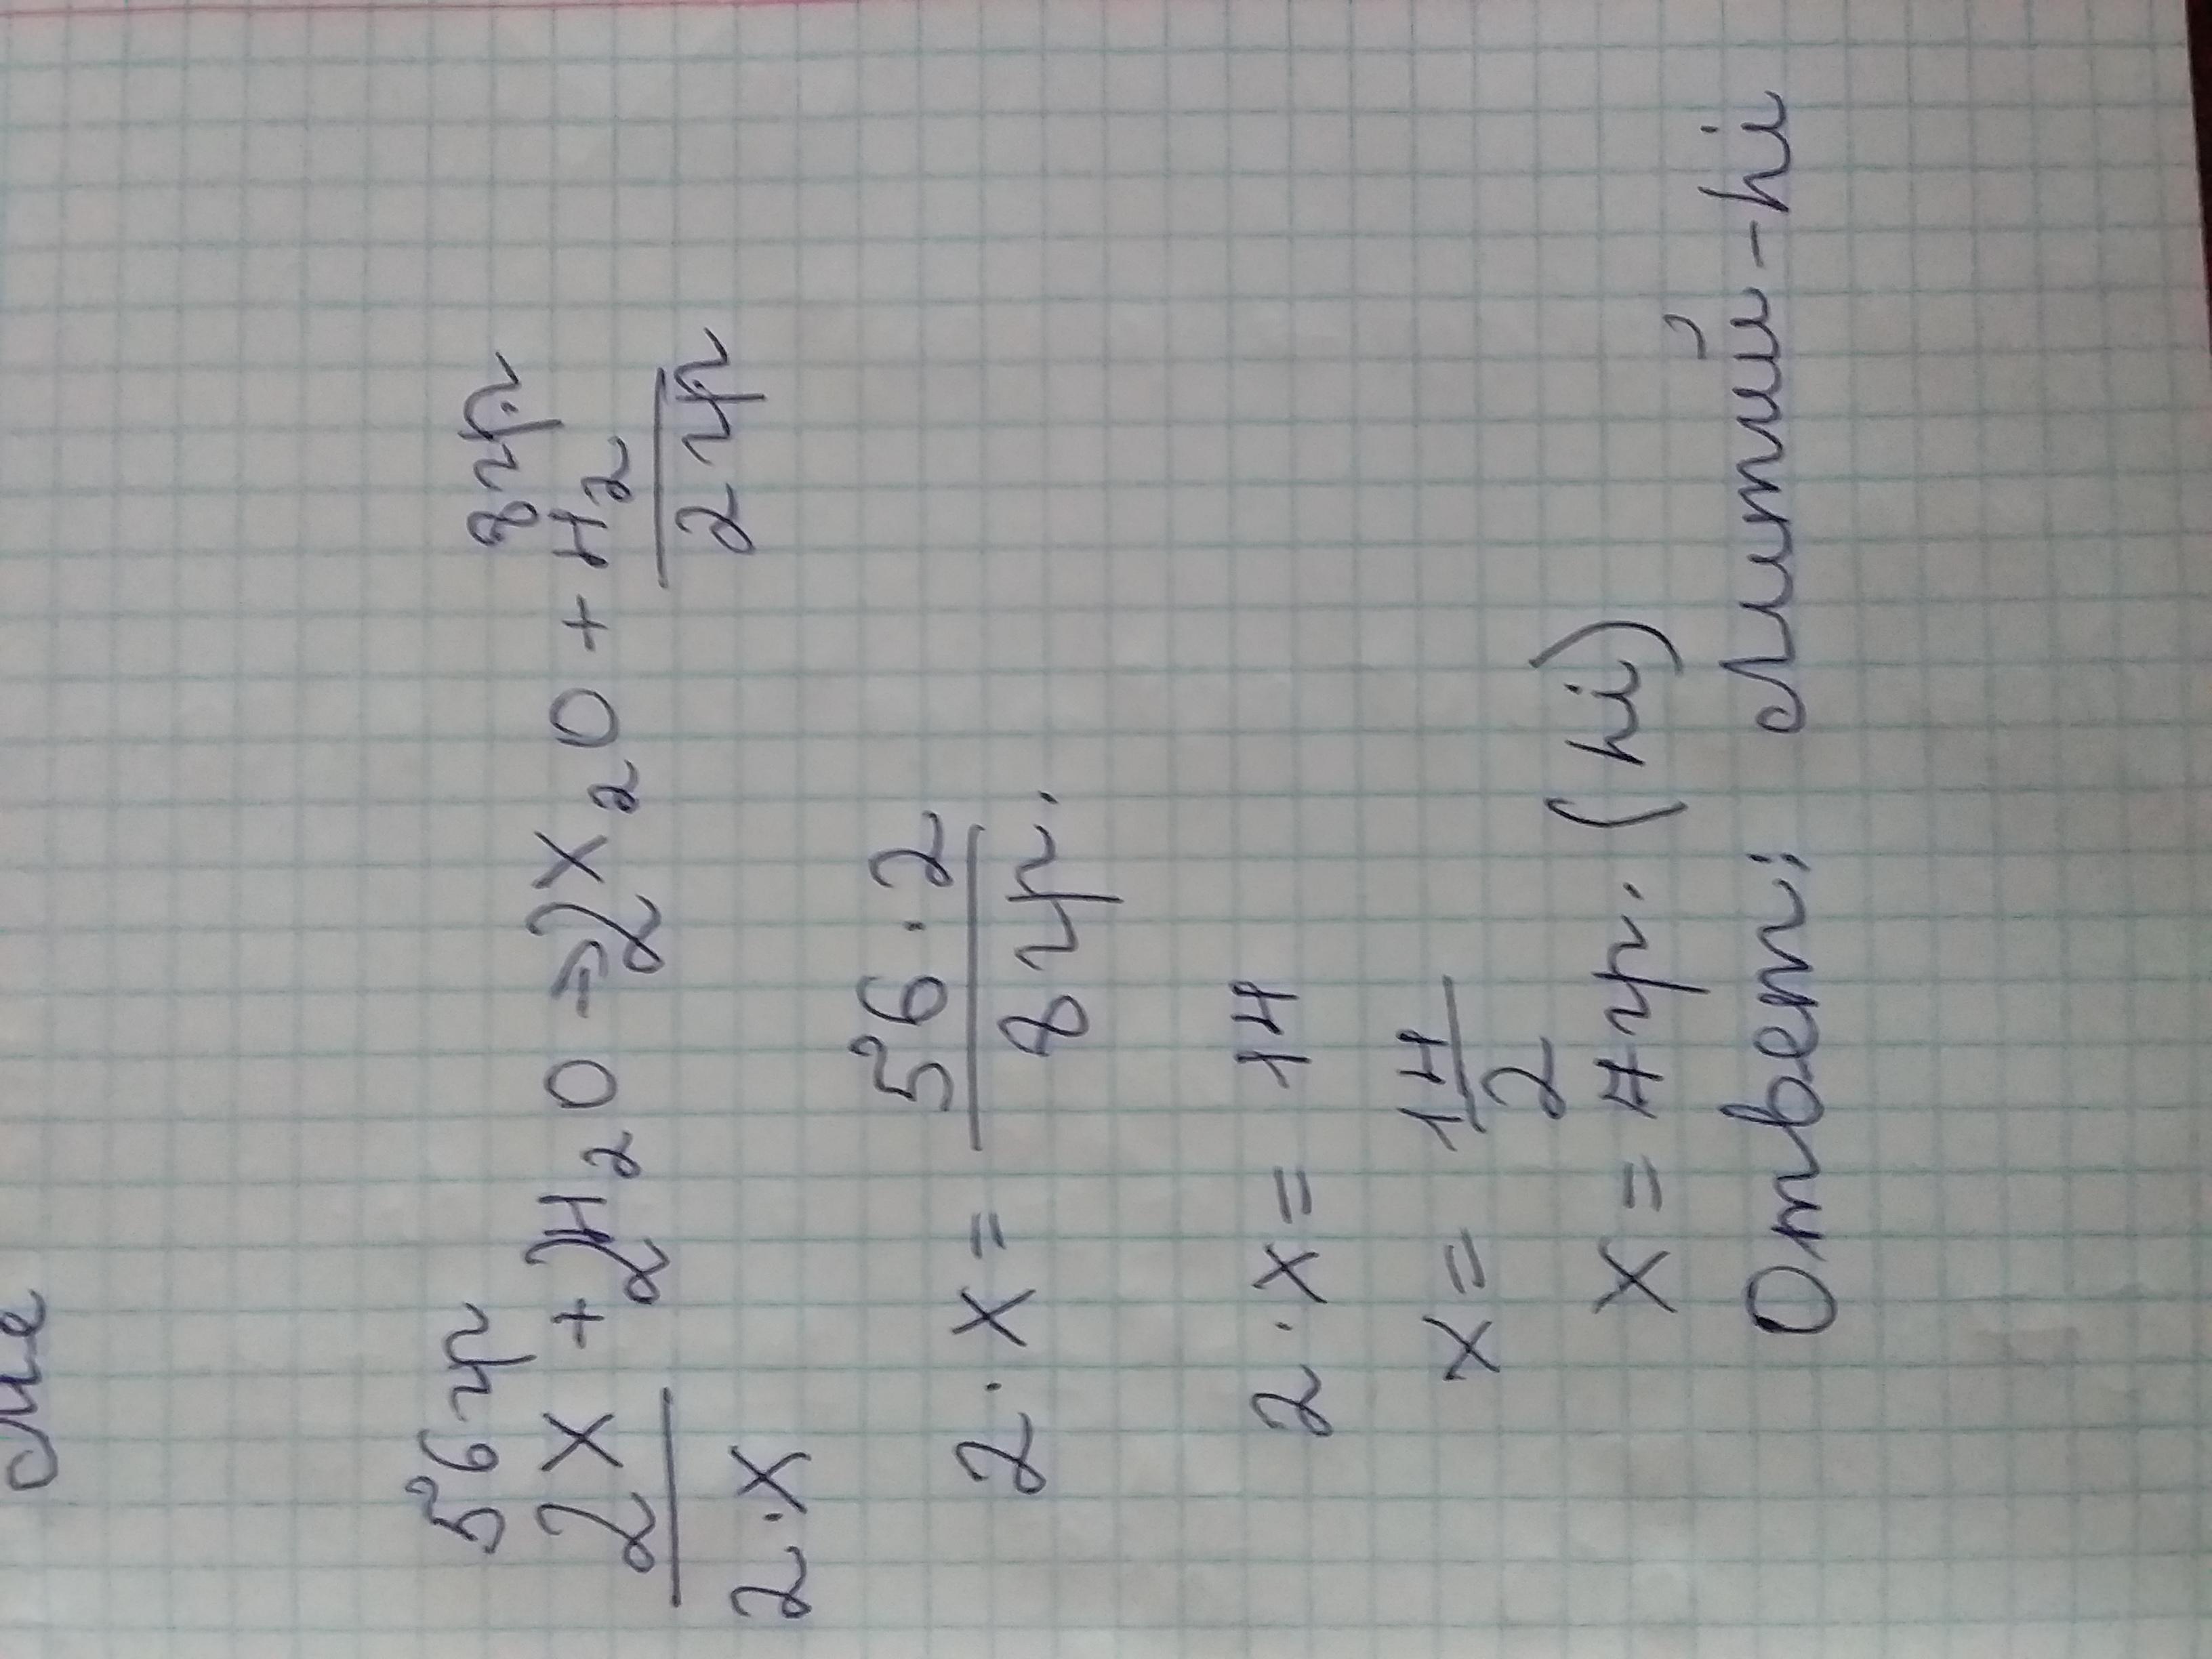 56 гр 8 гр.
2X + 2H₂O → 2X₂O + H₂
2·X 2 гр
2·X = 56·2 / 8 гр.
2·X = 14
X = 14/2
X = 7 гр. (hi)
Ответ: Литий - hi